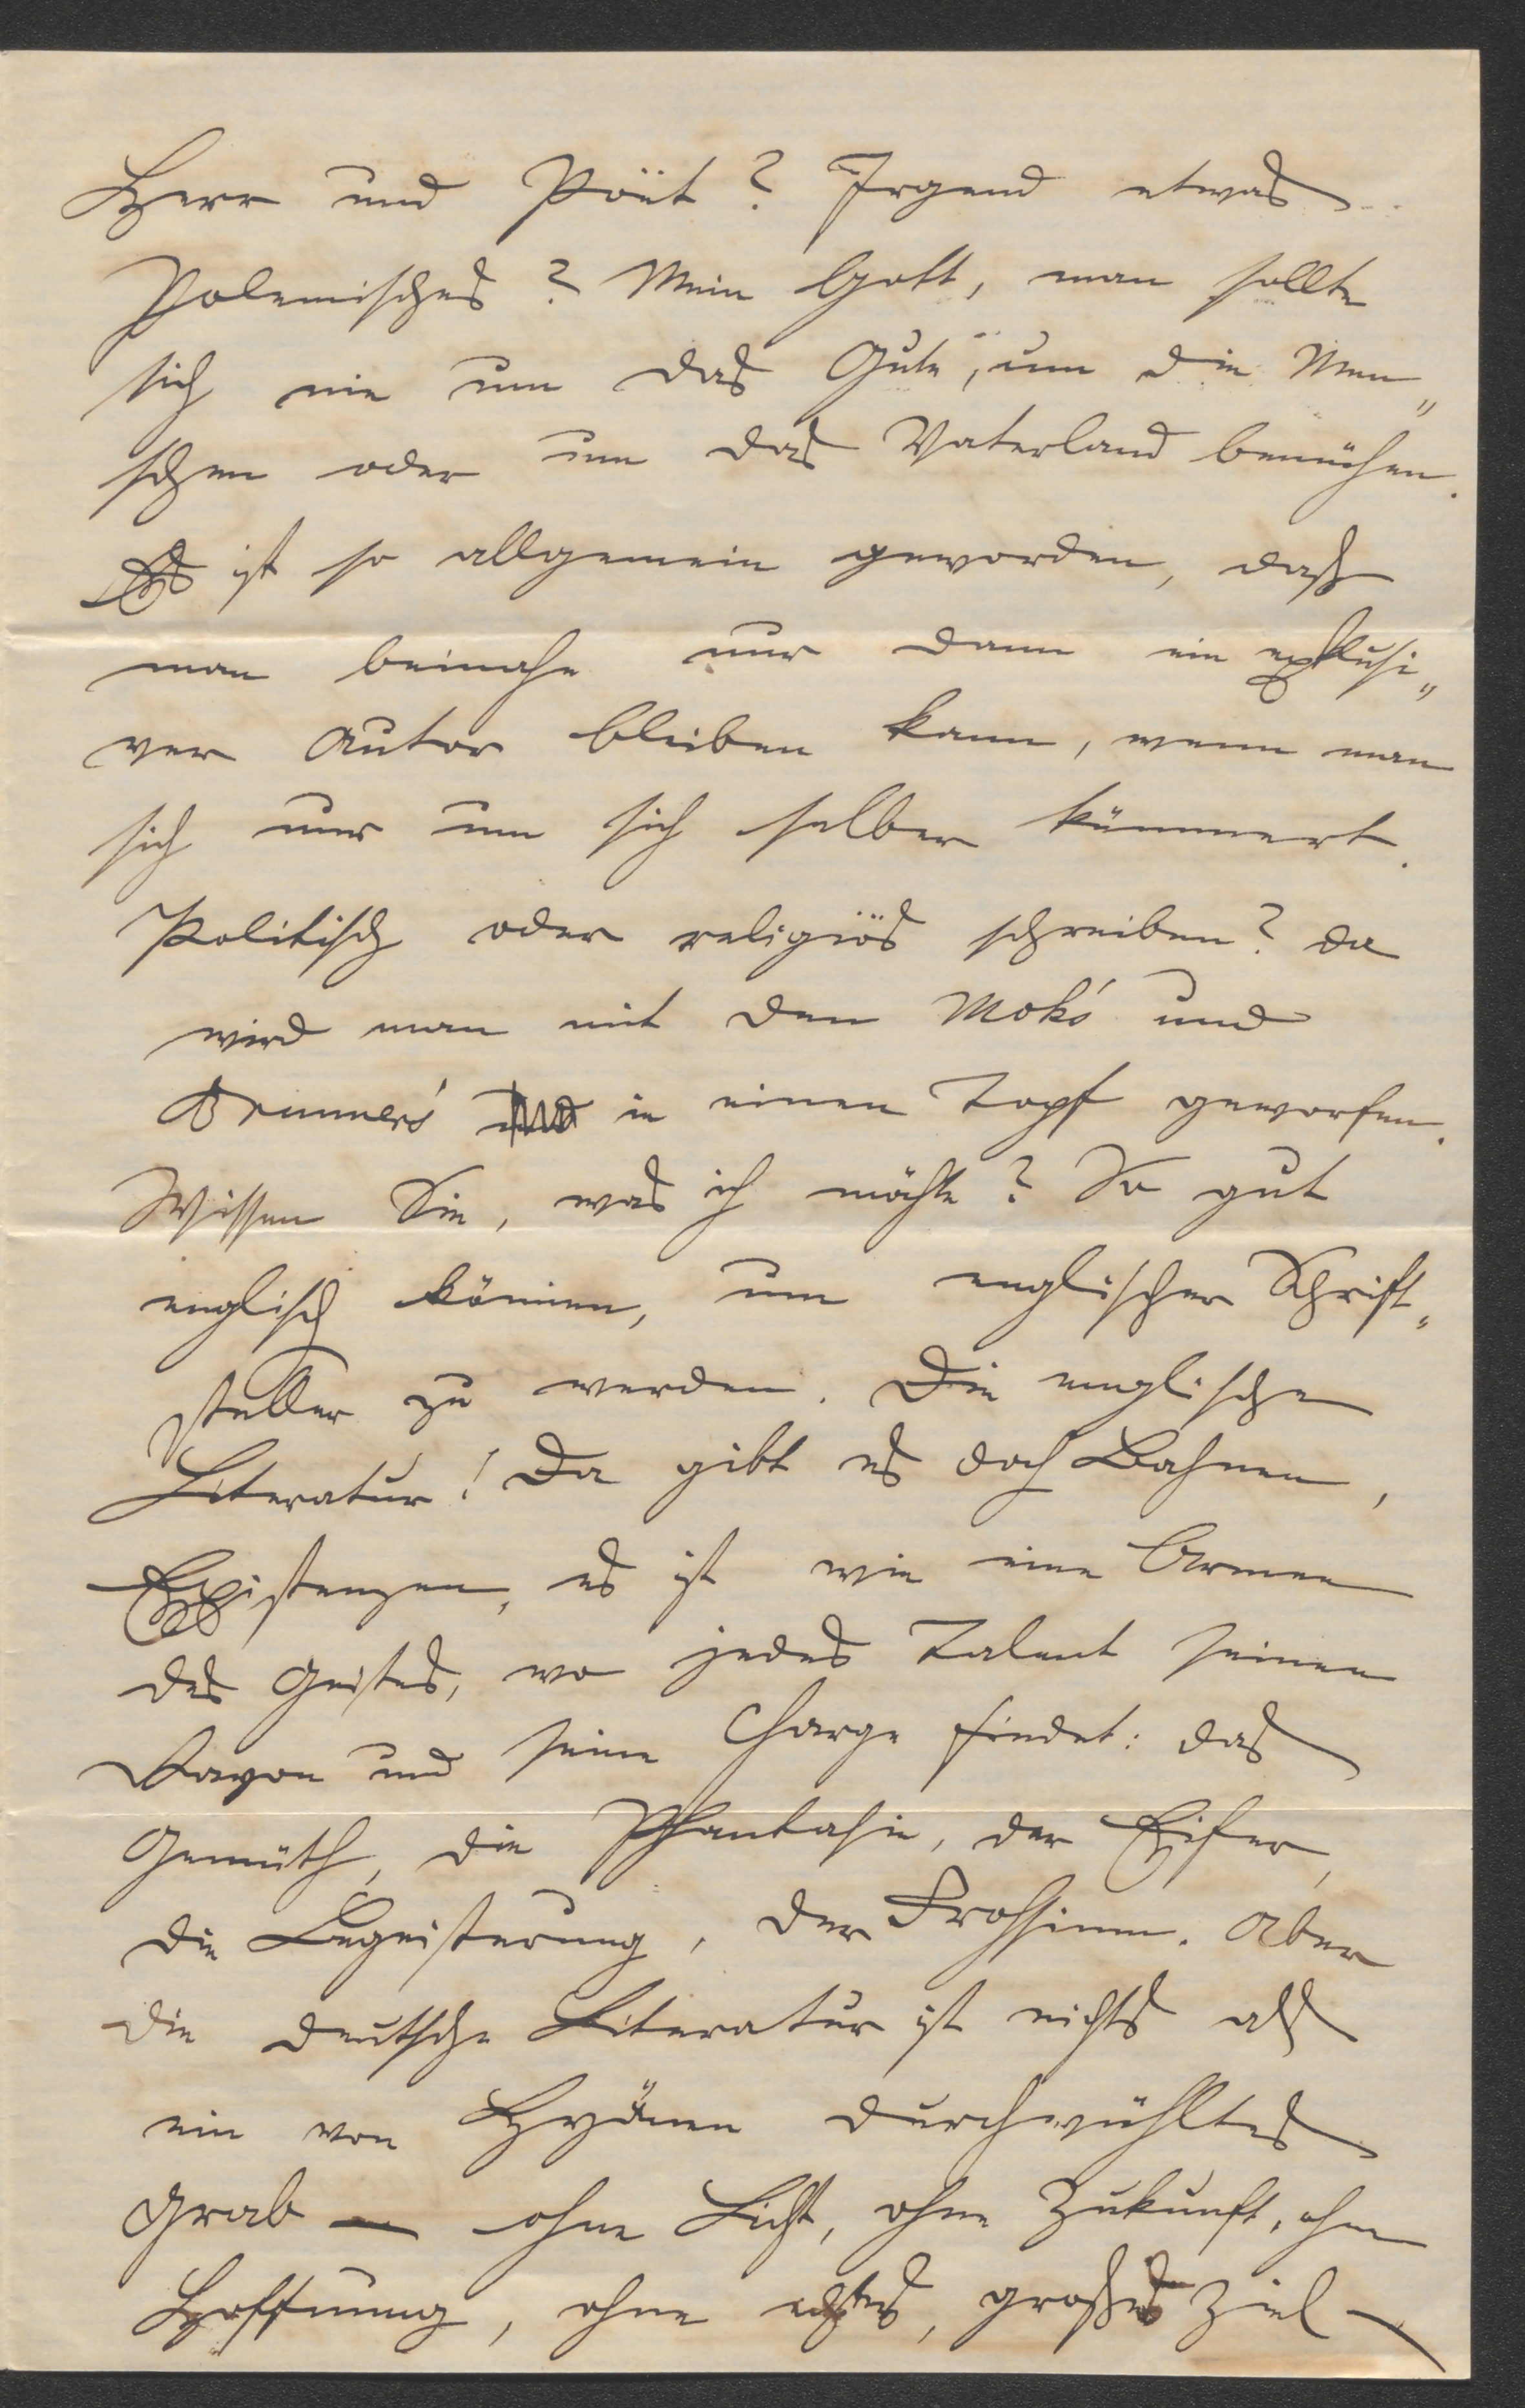 Herr und Poët? Irgend etwas
Polemisches? Mein Gott, man sollte
sich nie um das Gute, um die Men„
schen oder um das Vaterland bemühen.
Es ist so allgemein geworden, daß
man beinahe nur dann ein exklusi„
ver Autor bleiben kann, wenn man
sich nur um sich selber kümmert.
Politisch oder religiös schreiben? da
wird man mit den und
Brunner's in einen Topf geworfen.
Wissen Sie, was ich möchte? So gut
englisch können, um englischer Schrift„
steller zu werden. Die englische
Literatur! Da gibt es doch Bahnen,
Existenzen, es ist wie eine Armee
des Geistes, wo jedes Talent seinen
Rayon und seine Charge findet: das
Gemüth, die Phantasie, der Eifer,
die Begeisterung, der Frohsinn. Aber
die deutsche Literatur ist nichts als
ein von Hyänen durchwühltes
Grab — ohne Licht, ohne Zukunft, ohne
Hoffnung, ohne echtes, großes Ziel —